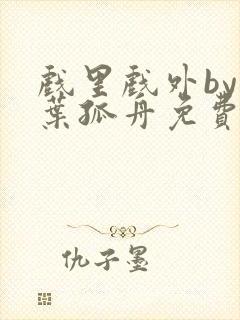 戲里戲外by
葉孤舟免費
仇子墨